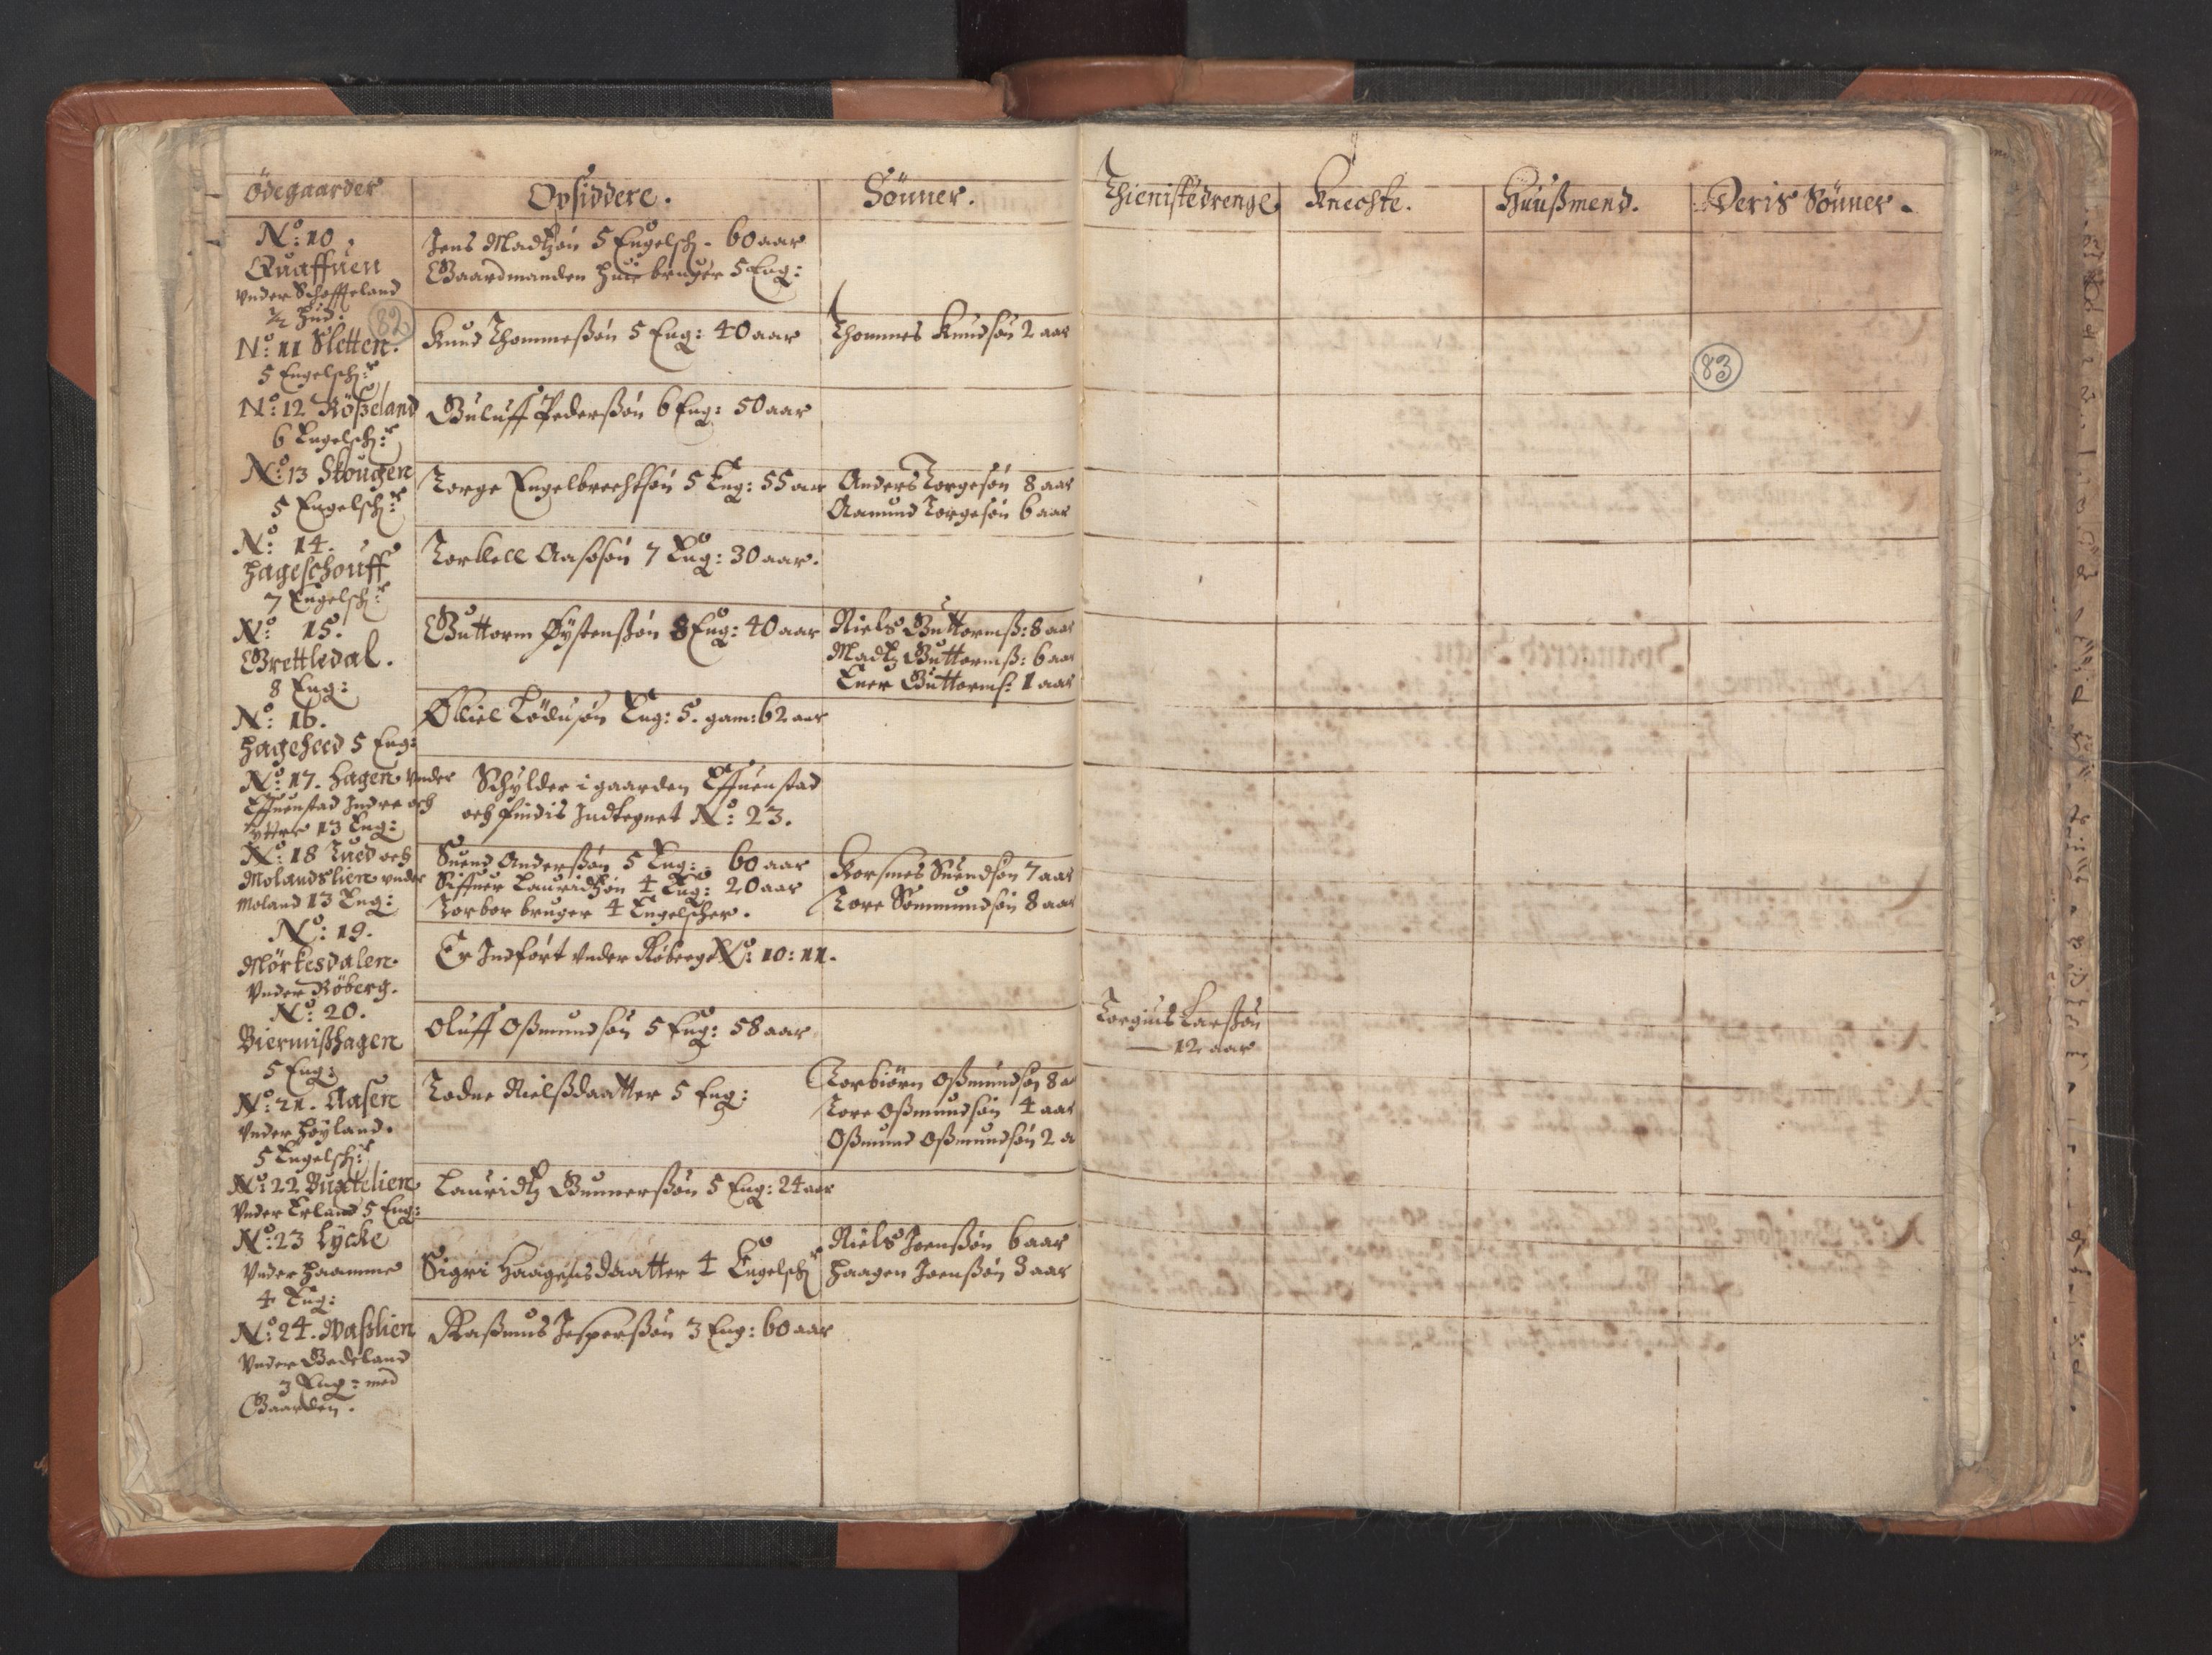 Ödegaarder Opsiddere. Sönner. Thienistedrenge Knechte. Huußmend. Deris Sönner.
No: 10
Quaffuen
Vnder Schoffteland
½ Hud:
Jens Madtzön 5 Engelsch. 60 aar
Gaardmanden hue bruger 5 Eng:
82
No: 11 Sletten.
5 Engelschr:
Knud Thommeßön 5 Eng: 40 aar
Thommes Knudsön 2 aar
83
No: 12 Rößeland
6 Engelschr:
Guluff Pederßön 6 Eng: 50 aar
No: 13 Skougen
5 Engelschr:
Torge Engelbrechtsön 5 Eng: 55 aar
Anders Torgesön 8 aar
Aamund Torgesön 6 aar
No: 14.
Hageschouff
7 Engelschr:
Torkell Aasösön 7 Eng: 30 aar.
No: 15.
Grettledal.
8 Eng:
Guttorm Öystenßön 8 Eng: 40 aar
Niels Guttormß: 8 aar
Madtz Guttormß: 6 aar
Ener Guttormß: 1 aar
No: 16.
Hageheed 5 Eng:
Ölliel Lödusön Eng: 5. gam: 62 aar
No: 17. Hagen vnder
Effuenstad Indre och
yttre 13 Eng:
Schylder i gaarden Effuenstad
och findis Indtegnet No: 23.
No: 18 Tued och
Molandslien vnder
Moland 13 Eng:
Suend Anderßön 5 Eng: 60 aar
Siffuer Lauridtzön 4 Eng: 20 aar
Torbor bruger 4 Engelscher.
Gorsmes Suendsön 7 aar
Tore Sommundsön 8 aar
No: 19.
Mörkesdalen
Vnder Röberg.
Er Indfört vnder Röberg No: 10: 11.
No: 20.
Biermißhagen
5 Eng:
Oluff Oßmundsön 5 Eng: 58 aar
Torgius Larßön
12 aar
No: 21. Aasen
Vnder Höyland.
5 Engelschr:
Todne Nielßdaatter 5 Eng:
Torbiörn Oßmundsön 8 a
Tore Oßmundsön 4 aar
Oßmund Oßmundsön 2 a
No: 22 Buxtelien
Vnder Erland 5 Eng:
Lauridtz Gunnerßön 5 Eng: 24 aar
No: 23 Lycke
Vnder Haamme
4 Eng:
Sigri Haagensdaatter 4 Engelschr
Niels Joenßön 6 aar
Haagen Joenßön 3 aar
No: 24. Waßlien
Vnder Gadeland
3 Eng: med
Gaarden.
Raßmus Jesperßön 3 Eng: 60 aar